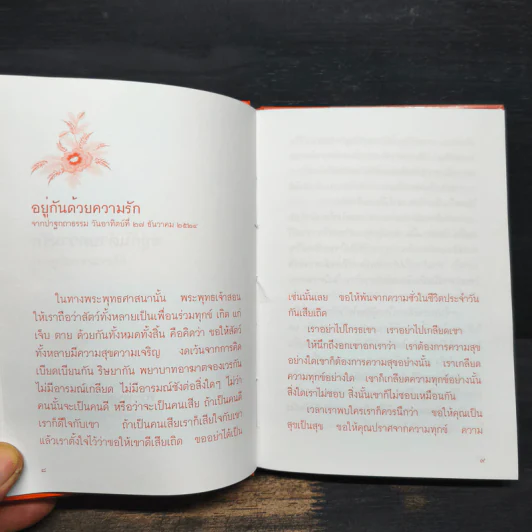 อยู่กันด้วยความรัก
จากปาฐกถาธรรม วันอาทิตย์ที่ ๒๗ ธันวาคม ๒๕๒๔
ในทางพระพุทธศาสนานั้น พระพุทธเจ้าสอน
ให้เราถือว่าสัตว์ทั้งหลายเป็นเพื่อนร่วมทุกข์ เกิด แก่
เจ็บ ตาย ด้วยกันทั้งหมดทั้งสิ้น คือคิดว่า ขอให้สัตว์
ทั้งหลายมีความสุขความเจริญ งดเว้นจากการคิด
เบียดเบียนกัน ริษยากัน พยาบาทอาฆาตจองเวรกัน
ไม่มีอารมณ์เกลียด ไม่มีอารมณ์ชังต่อสิ่งใดๆ ไม่ว่า
คนนั้นจะเป็นคนดี หรือว่าจะเป็นคนเสีย ถ้าเป็นคนดี
เราก็ดีใจกับเขา ถ้าเป็นคนเสียเราก็เสียใจกับเขา
แล้วเราตั้งใจไว้ว่าขอให้เขาดีเสียเถิด ขออย่าได้เป็น
๘
เช่นนั้นเลย ขอให้พ้นจากความชั่วในชีวิตประจำวัน
กันเสียเถิด
เราอย่าไปโกรธเขา เราอย่าไปเกลียดเขา
ให้นึกถึงอกเขาอกเราว่า เราต้องการความสุข
อย่างใดเขาก็ต้องการความสุขอย่างนั้น เราเกลียด
ความทุกข์อย่างใด เขาก็เกลียดความทุกข์อย่างนั้น
สิ่งใดเราไม่ชอบ สิ่งนั้นเขาก็ไม่ชอบเหมือนกัน
เวลาเราพบใครเราก็ควรนึกว่า ขอให้คุณเป็น
สุขเป็นสุข ขอให้คุณปราศจากความทุกข์ ความ
๙